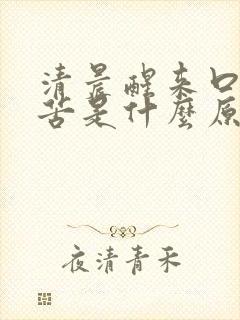 清晨醒来口
苦是什麼原
夜清青禾